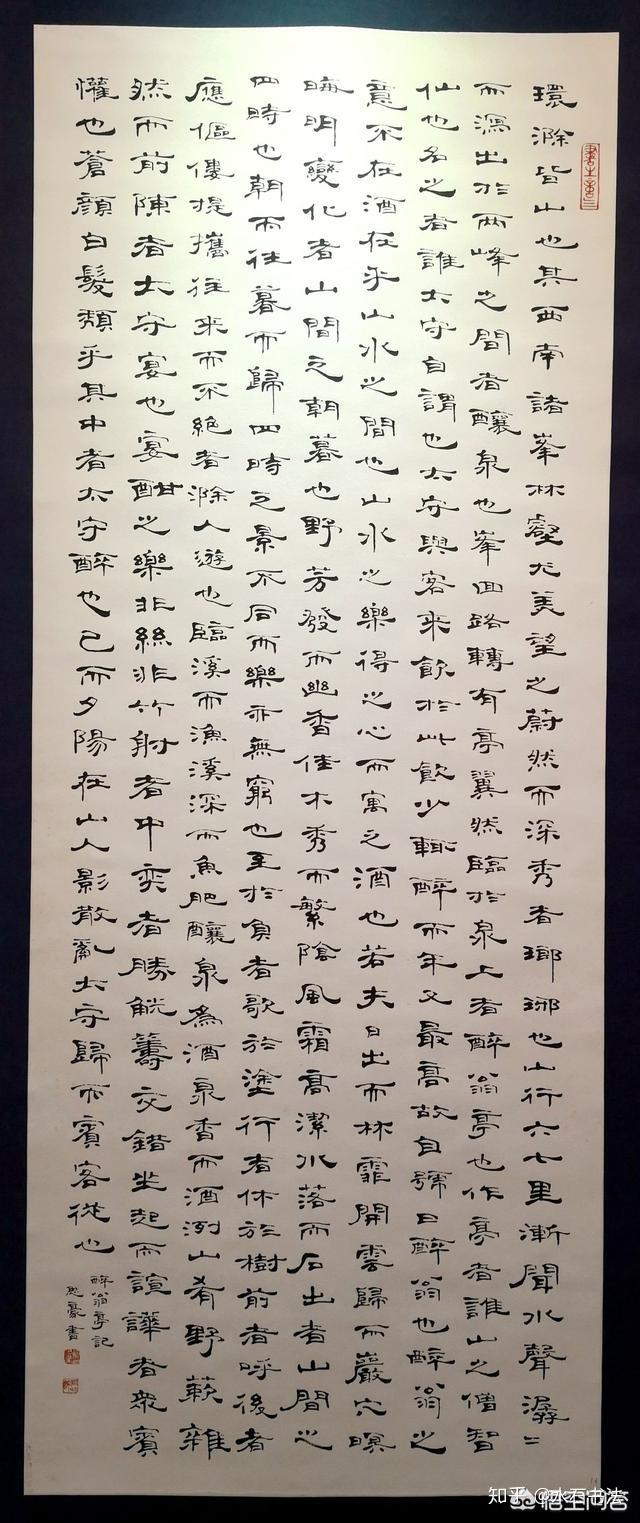 環滁皆山也其西南諸峯林壑尤美望之蔚然而深秀者瑯琊也山行六七里漸聞水聲潺〻
而瀉出於兩峰之間者釀泉也峯回路轉有亭翼然臨於泉上者醉翁亭也作亭者誰山之僧智
仙也名之者誰太守自謂也太守與客來飲於此飲少輒醉而年又最高故自號曰醉翁也醉翁之
意不在酒在乎山水之間也山水之樂得之心而寓之酒也若夫日出而林霏開雲歸而巖穴暝
晦明變化者山間之朝暮也野芳發而幽香佳木秀而繁陰風霜高潔水落而石出者山間之
四時也朝而往暮而歸四時之景不同而樂亦無窮也至於負者歌於塗行者休於樹前者呼後者
應傴僂提攜往來而不絕者滁人遊也臨溪而漁溪深而魚肥釀泉為酒泉香而酒洌山肴野蔌雜
然而前陳者太守宴也宴酣之樂非絲非竹射者中奕者勝觥籌交錯坐起而諠譁者眾賓
懽也蒼顏白髮頹乎其中者太守醉也已而夕陽在山人影散亂太守歸而賓客從也
醉翁亭記
豪書
知乎 @水石书法
悟空问答